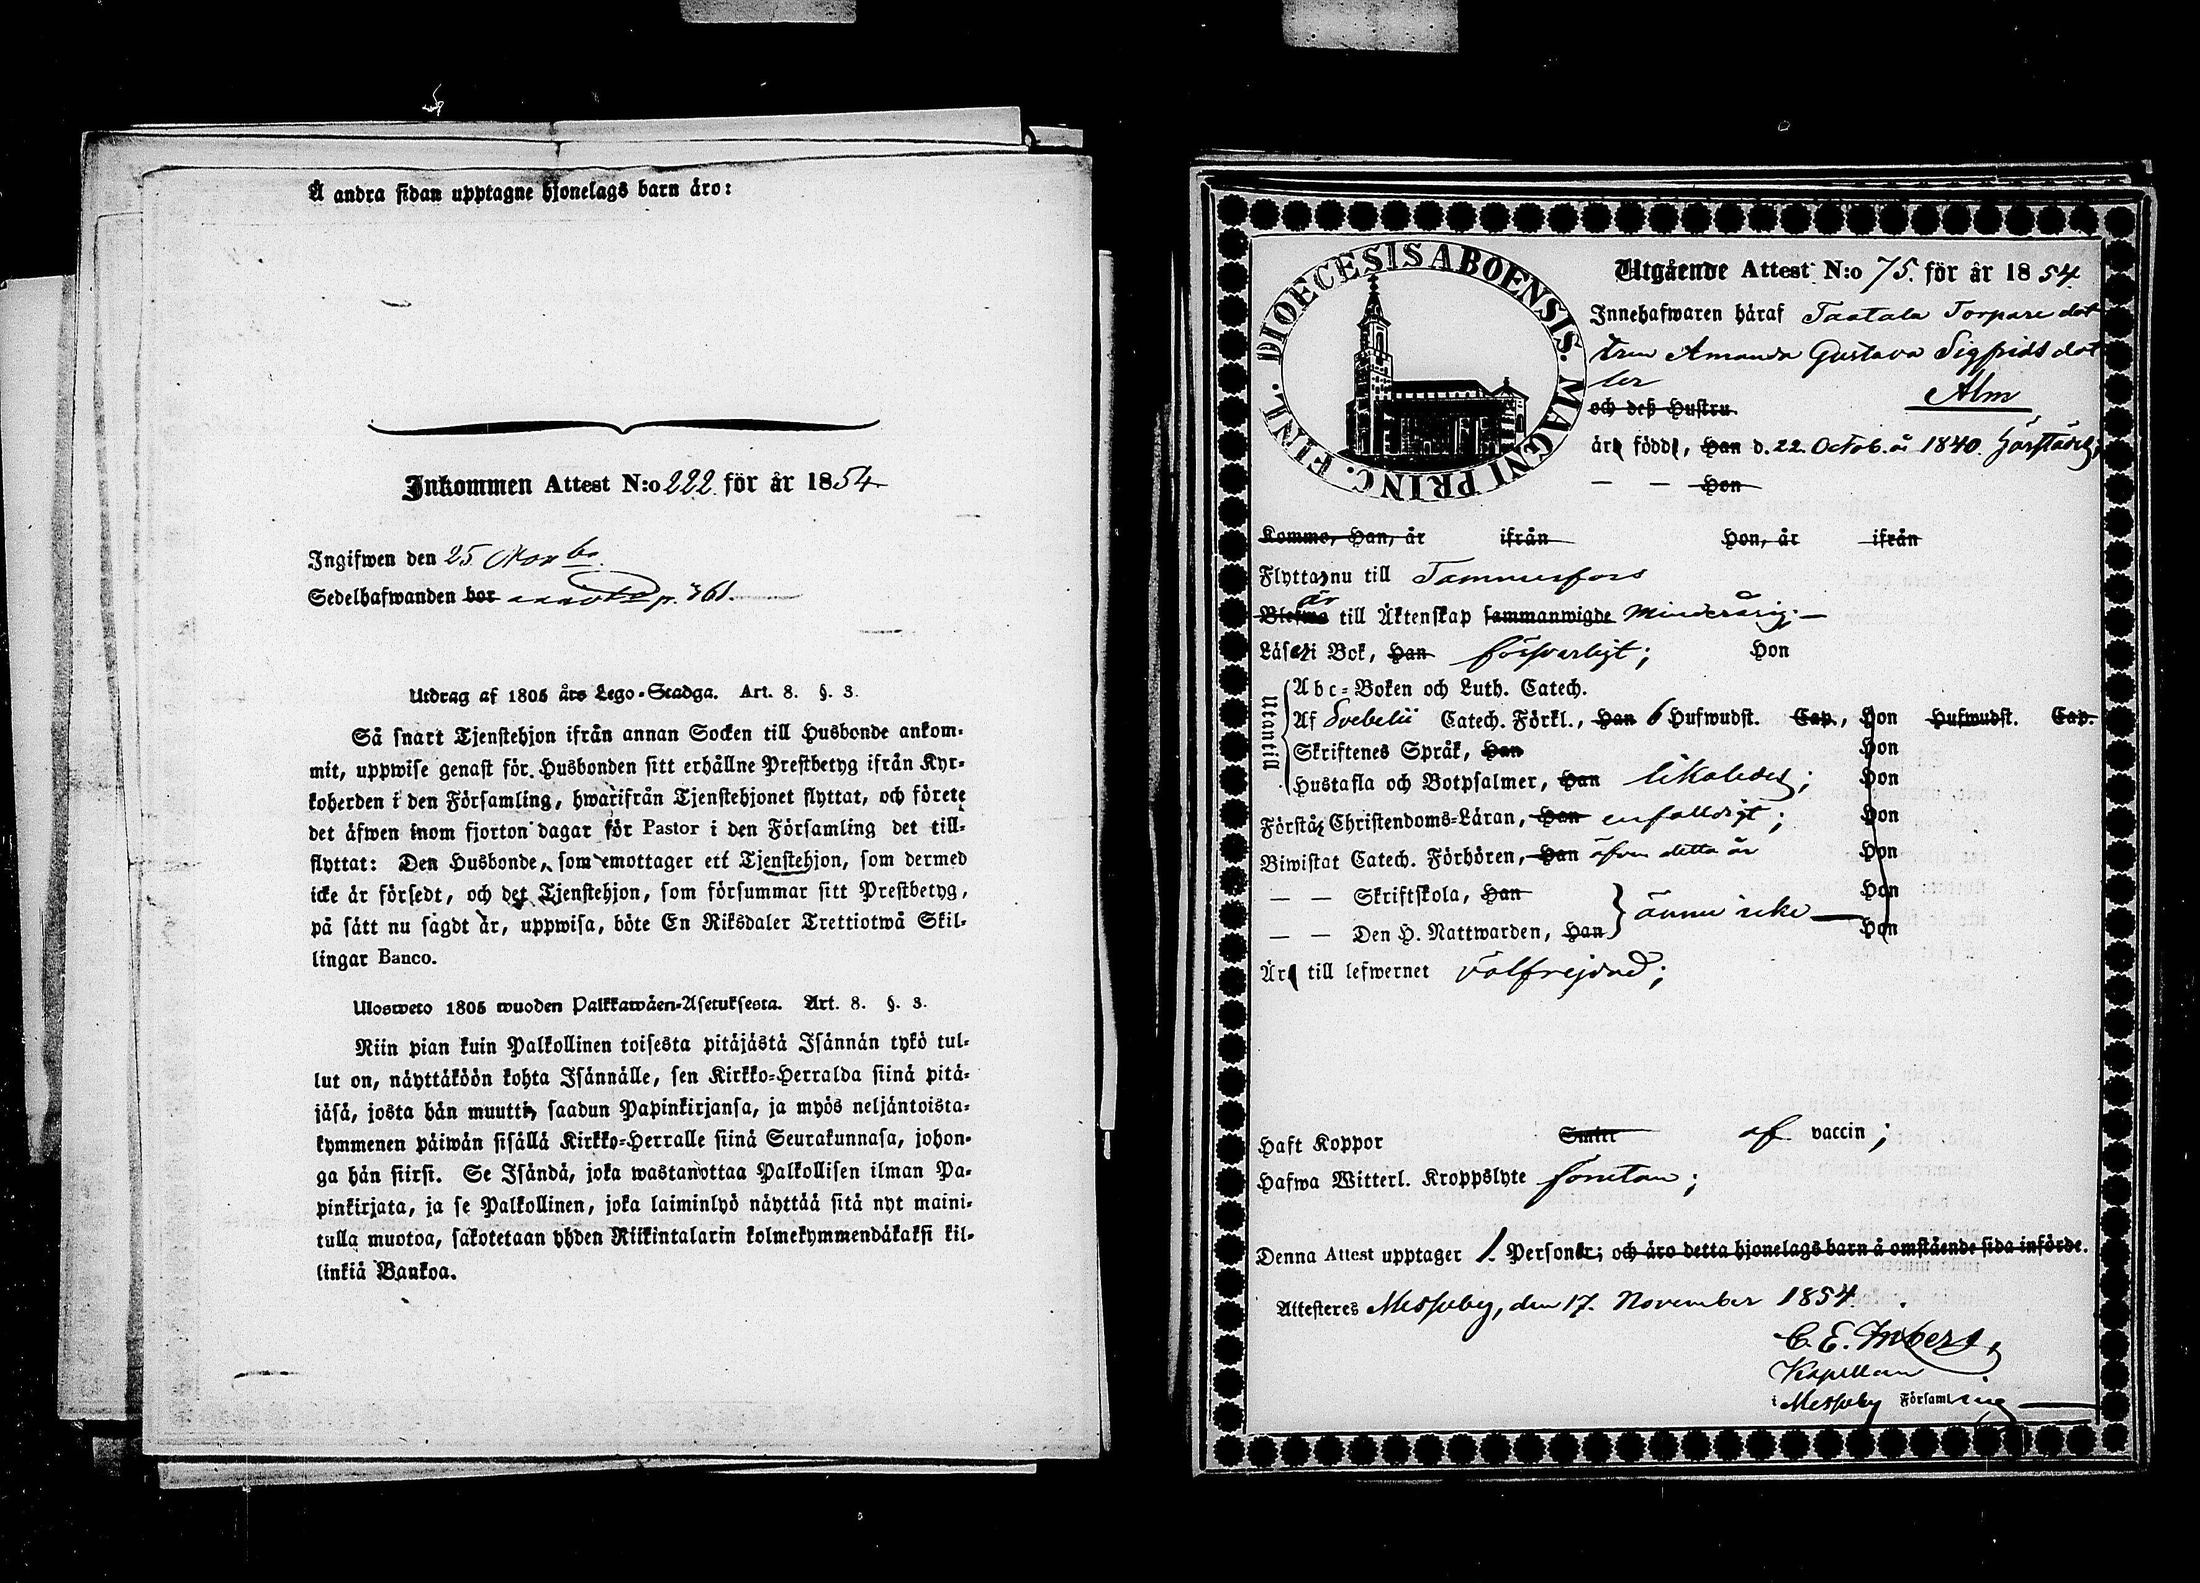 Å andra sidan upptagne hjonelags barn äro:
Inkommen Attest N:o 222 för år 1854
Ingifwen den 25 Novbr
Sedelhafwanden bor p. 361.
Utdrag af 1805 års Lego-Stadga. Art. 8. §. 3.
Så snart Tjenstehjon ifrån annan Socken till Husbonde ankom-
mit, uppwise genast för Husbonden sitt erhållne Prestbetyg ifrån Kyr-
koherden i den Församling, hwarifrån Tjenstehjonet flyttat, och förete
det äfwen inom fjorton dagar för Pastor i den Församling det till-
flyttat: Den Husbonde, som emottager ett Tjenstehjon, som dermed
icke är försedt, och det Tjenstehjon, som försummar sitt Prestbetyg,
på sätt nu sagdt är, uppwisa, böte En Riksdaler Trettiotwå Skil-
lingar Banco.
Ulosweto 1805 wuoden Palkkawäen-Asetuksesta. Art. 8. §. 3.
Niin pian kuin Palkollinen toisesta pitäjästä Isännän tykö tul-
lut on, näyttäköön kohta Isännälle, sen Kirkko-Herralda siinä pitä-
jäsä, josta hän muutti, saadun Papinkirjansa, ja myös neljäntoista-
kymmenen päiwän sisällä Kirkko-Herralle siinä Seurakunnasa, johon-
ga hän siirsi. Se Isändä, joka wastanottaa Palkollisen ilman Pa-
pinkirjata, ja se Palkollinen, joka laiminlyö näyttää sitä nyt maini-
tulla muotoa, sakotetaan yhden Riikintalarin kolmekymmendäkaksi kil-
linkiä Bankoa.
DIOECESIS ABOENSIS. MAGNI PRINC. FINL.
Utgående Attest N:o 75. för år 1854
Innehafwaren häraf Taatala Torpare dot
tren Amanda Gustava Sigfrids dot
ter
Alm
och deß Hustru
äro födde, Han d. 22. Octob. å 1840. härstädes,
— — Hon
Komme, Han, år ifrån Hon, år ifrån
Flytta nu till Tammerfors
är
Blefwo till Äktenskap sammanwigde Minderårig; —
Läsa i Bok, Han försvarligt; Hon
Utantill
Abc-Boken och Luth. Catech.
Af Svebelii Catech. Förkl., Han 6 Hufwudst. Cap., Hon Hufwudst. Cap.
Skriftenes Språk, Han Hon
Hustafla och Botpsalmer, Han likaledes; Hon
Förstår Christendoms-Läran, Han enfaldigt; Hon
Biwistat Catech. Förhören, Han äfven detta år Hon
— — Skriftskola, Han Hon
ännu icke
— — Den H. Nattwarden, Han Hon
Äro till lefwernet välfrejdad;
Haft Koppor Smitt af vaccin;
Hafwa Witterl. Kroppslyte förutan;
Denna Attest upptager 1. Personer; och äro detta hjonelags barn å omstående sida införde.
Attesteres Messuby, den 17. November 1854.
C. E. Inberg,
Kapellan
i Messuby Församling